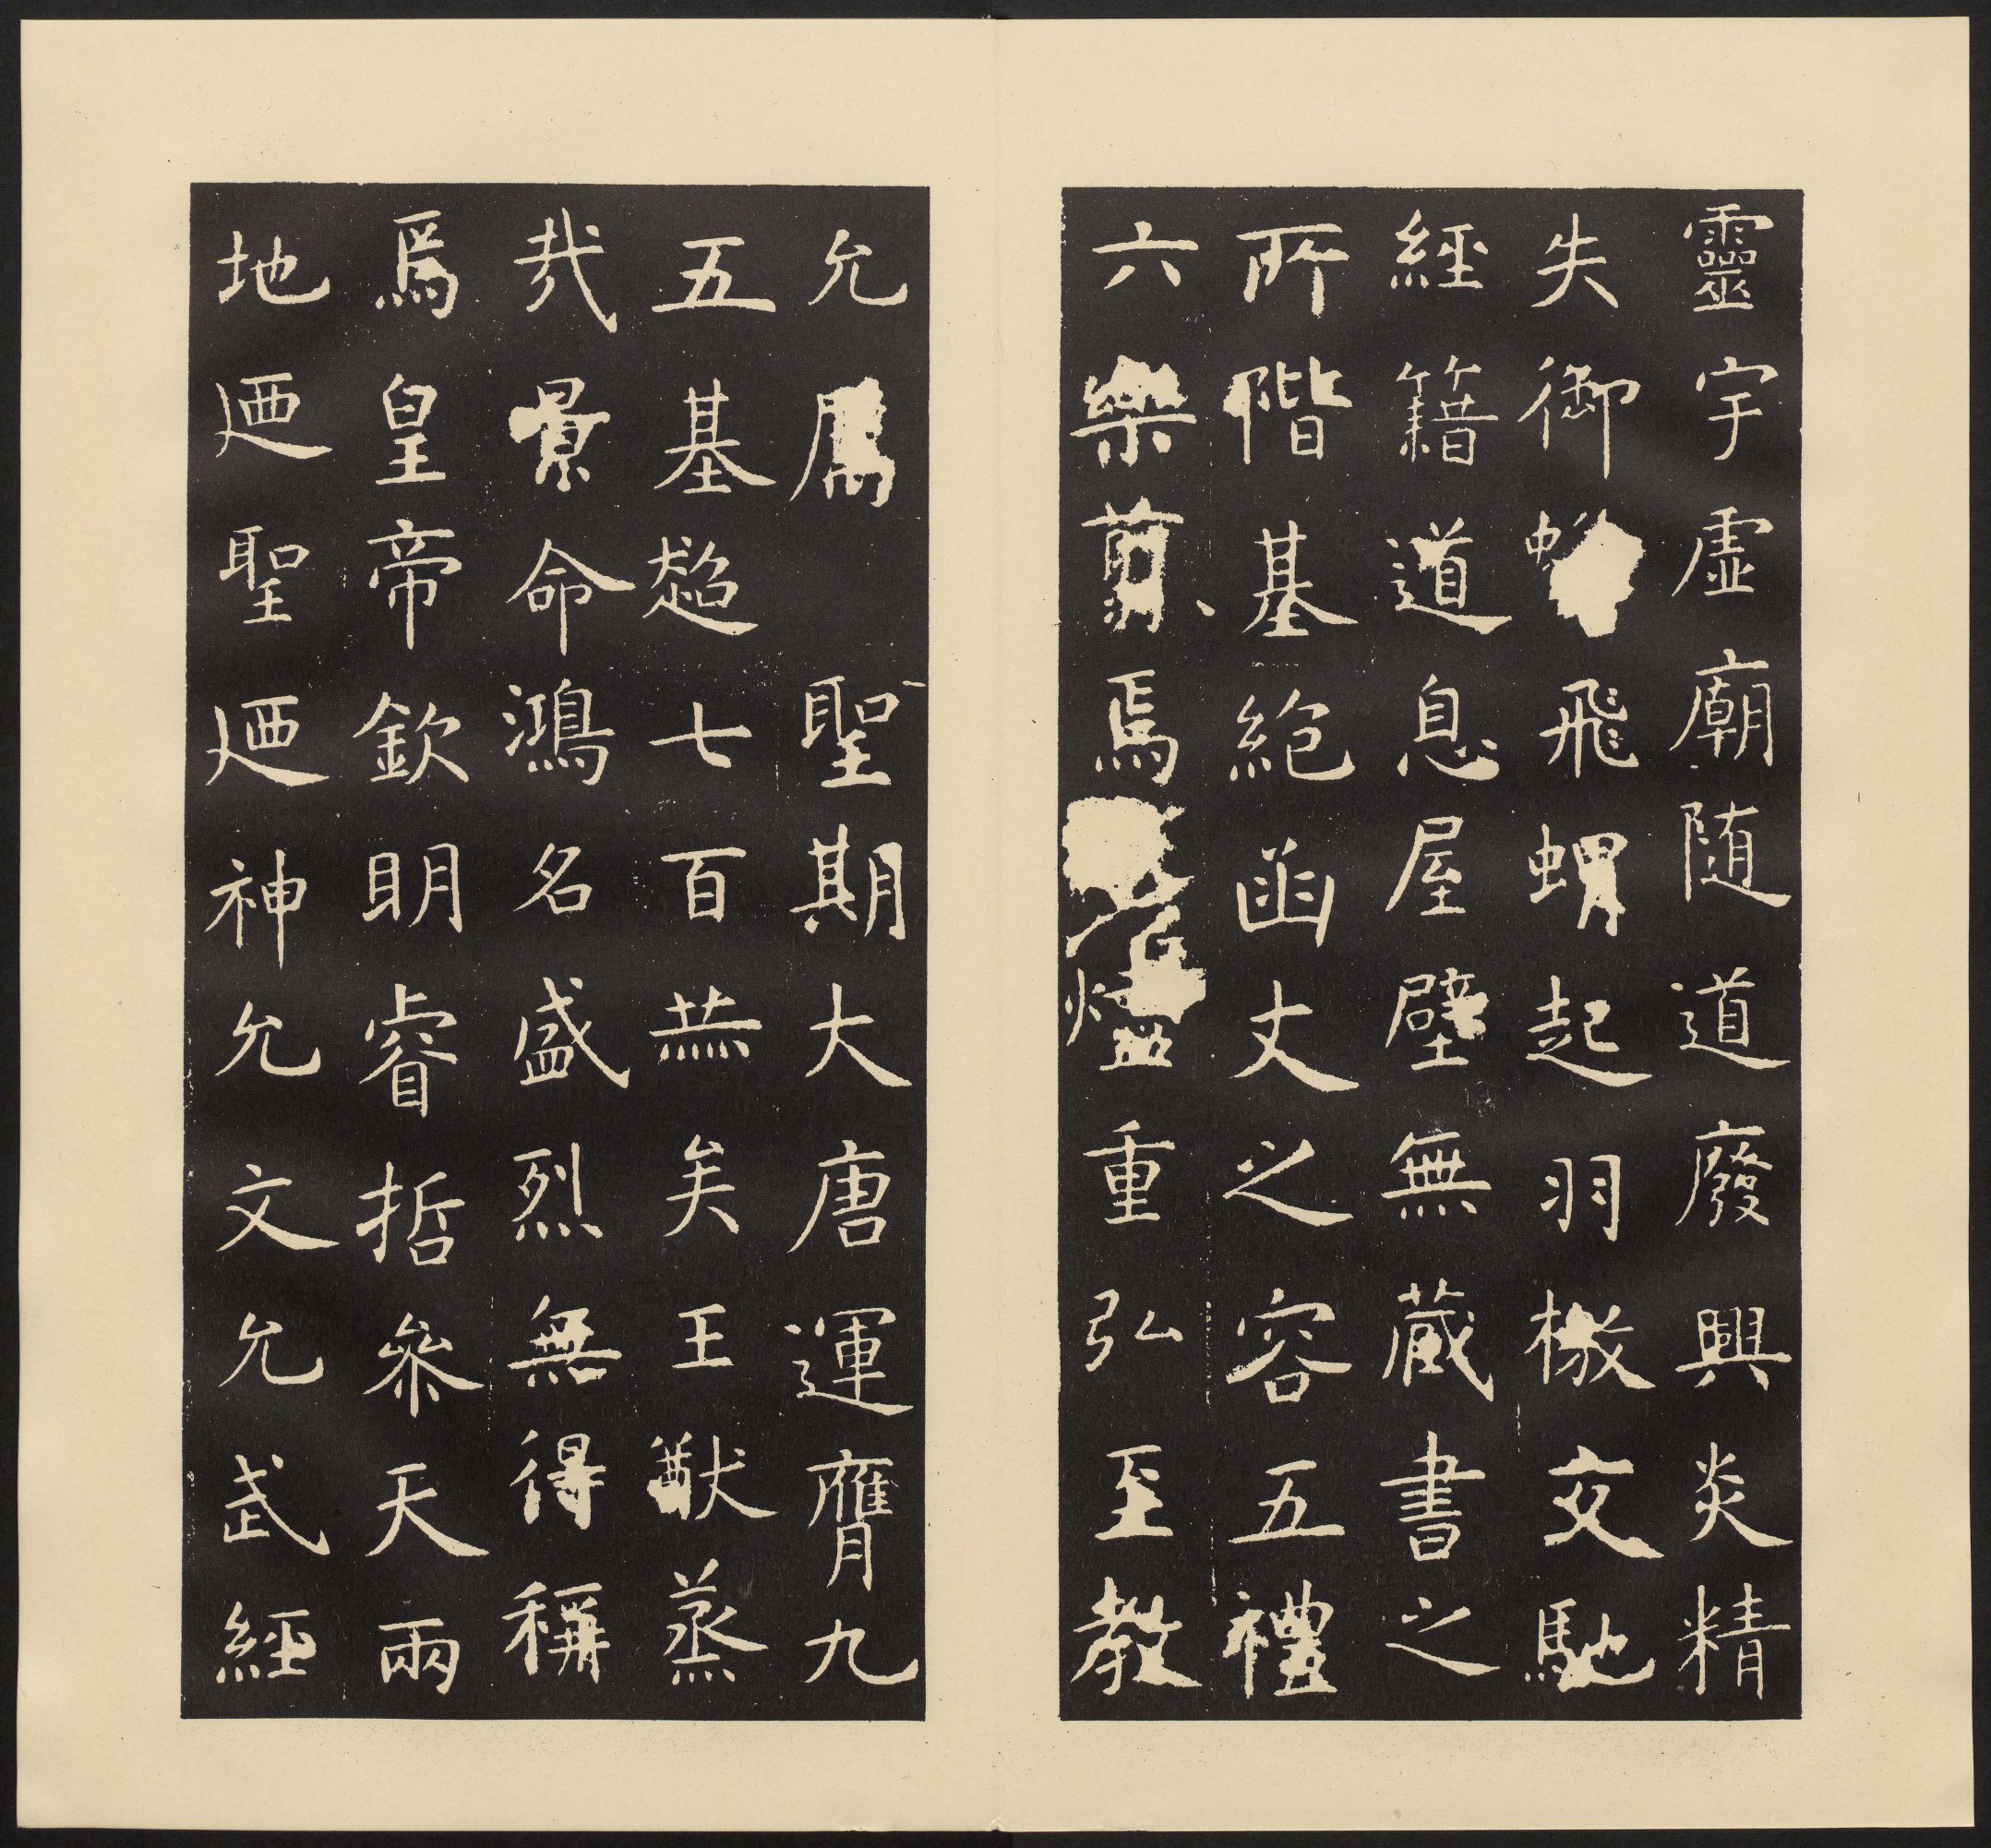 靈宇虛廟随道廢興炎精
失御蜂飛蝟起羽檄交馳
經籍道息屋壁無藏書之
所階基絕函丈之容五禮
六樂翦焉煨燼重弘至教
允屬聖期大唐運膺九
五基超七百赫矣王猷蒸
哉景命鴻名盛烈無得稱
焉皇帝欽明睿哲叅天兩
地迺聖迺神允文允武經